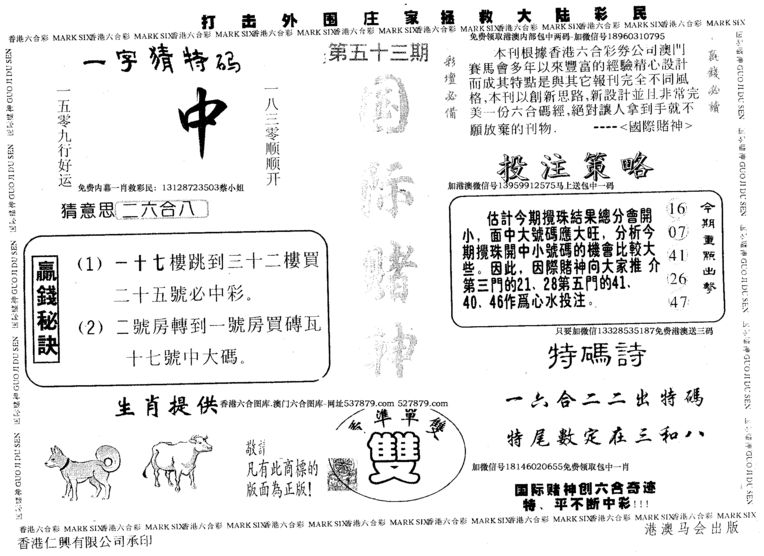 打击外围庄家拯救大陆彩民
香港六合彩 MARK SIX香港六合彩 MARK SIX香港六合彩 MARK SIX香港六合彩 MARK SIX香港六合彩 MARK SIX香港六合彩 MARK SIX香港六合彩 MARK SIX香港六合彩 MARK SIX
一字猜特码
一五零九行好运
中
一八三零顺顺开
免费内幕一肖救彩民：13128723503蔡小姐
猜意思 二六合八
第五十三期
国际赌神
彩壇必備
免费领取港澳内部包中两码-加微信号18960310795
本刊根據香港六合彩券公司澳門
賽馬會多年以來豐富的經驗精心設計
而成其特點是與其它報刊完全不同風
格,本刊以創新思路,新設計並且非常完
美一份六合碼經,絕對讓人拿到手就不
願放棄的刊物．　----<國際賭神>
贏錢必讀
投注策略
加港澳微信号13959912575马上送包中一码
估計今期攪珠結果總分會開
小，面中大號碼應大旺，分析今
期攪珠開中小號碼的機會比較大
些。因此，因際賭神向大家推 介
第三門的21、28第五門的41.
40、46作爲心水投注。
16
07
41
26
47
今期重點出擊
只要加微信13328535187免费港澳送三码
贏錢秘訣
(1) 一十七樓跳到三十二樓買
二十五號必中彩。
(2) 二號房轉到一號房買磚瓦
十七號中大碼。
特碼詩
一六合二二出特碼
特尾數定在三和八
加微信号18146020655免费领取包中一肖
国际赌神创六合奇迹
特、平不断中彩!!!
生肖提供
香港六合图库-澳门六合图库-网址537879.com 527879.com
敬請
凡有此商標的
版面為正版!
準單
雙
GUO JI DU SEN
香港六合彩 MARK SIX香港六合彩 MARK SIX香港六合彩 MARK SIX香港六合彩 MARK SIX香港六合彩 MARK SIX香港六合彩 MARK SIX香港六合彩 MARK SIX香港六合彩 MARK SIX
香港仁興有限公司承印
港澳马会出版